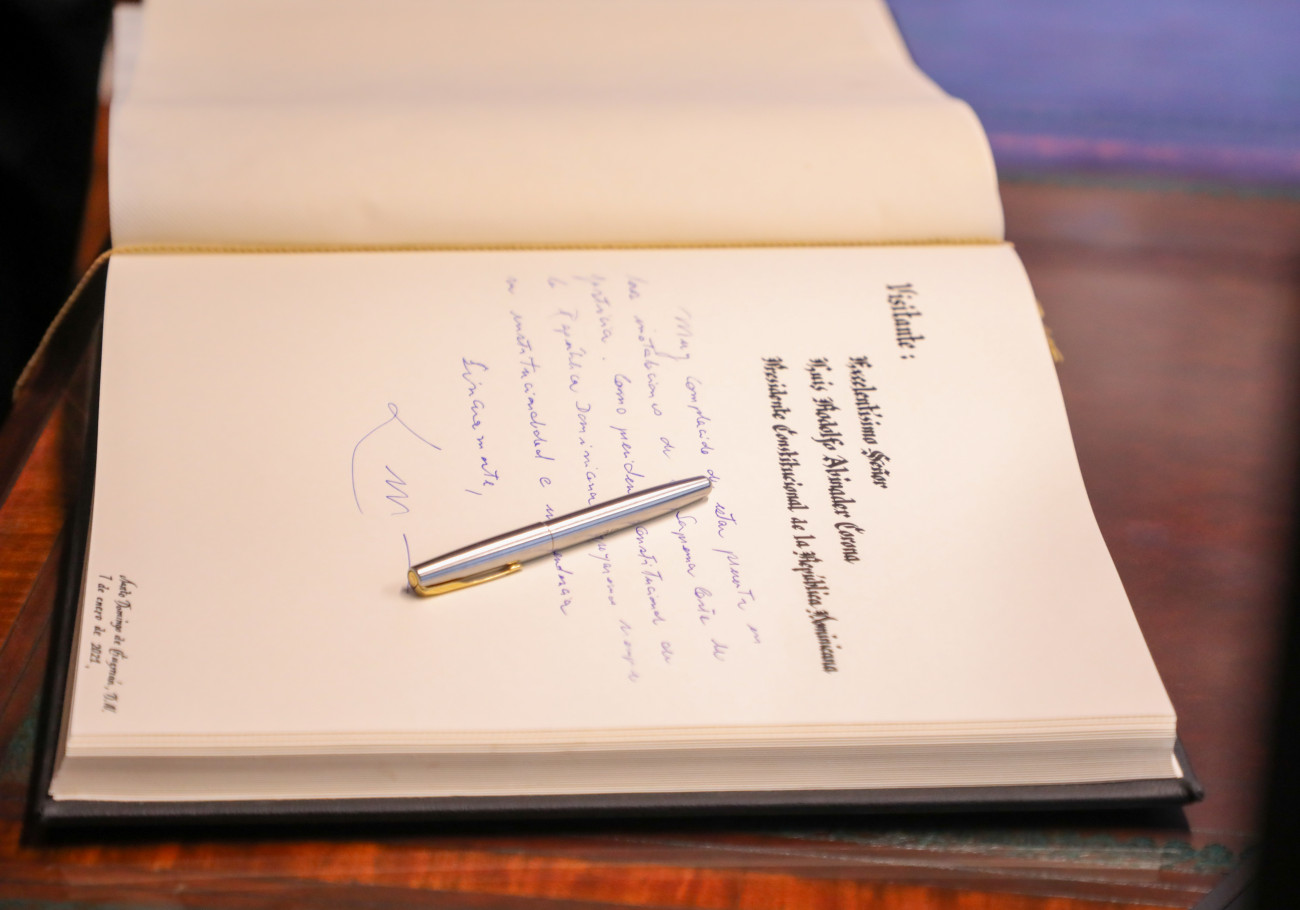 Visitante:
Excelentísimo Señor
Luis Rodolfo Abinader Corona
Presidente Constitucional de la República Dominicana
Muy complacido de estar presente en
las instalaciones de Suprema Corte de
justicia. Como presiden Constitucional de
la República Dominicana
su institucionalidad e
Sinceramente,
Santo Domingo de Guzmán, D.N.
7 de enero de 2021.